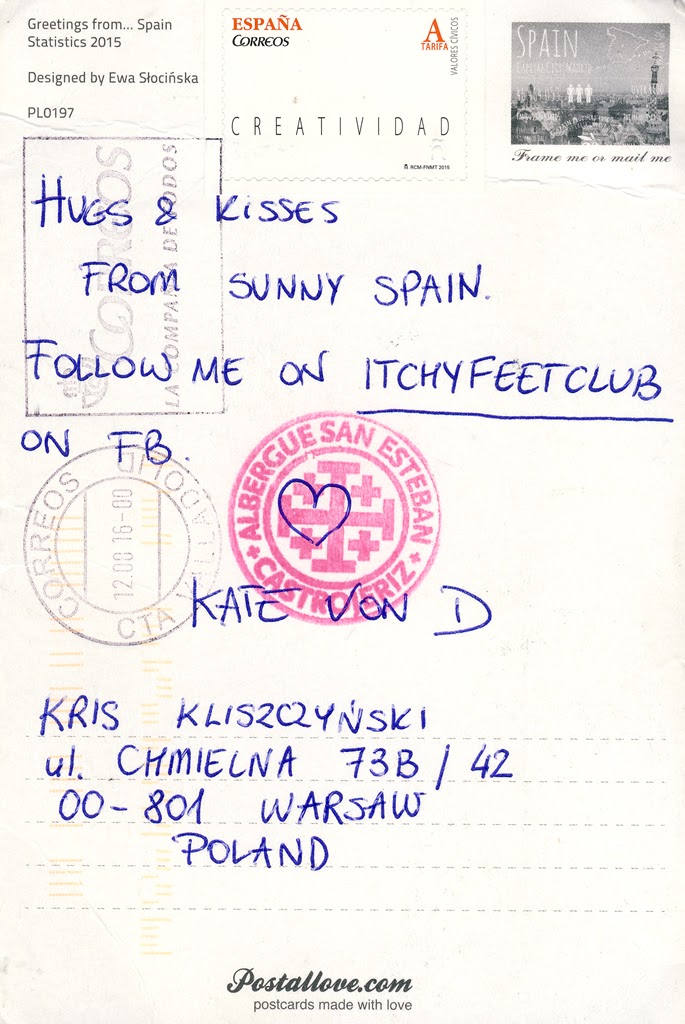 Greetings from... Spain
Statistics 2015
Designed by Ewa Słocińska
PL0197
ESPAÑA
CORREOS
A
TARIFA
VALORES CÍVICOS
CREATIVIDAD
RCM-FNMT 2015
SPAIN
Frame me or mail me
CORREOS
LA COMPAÑÍA DE TODOS
HUGS & KISSES
FROM SUNNY SPAIN.
FOLLOW ME ON ITCHYFEETCLUB
ON FB.
ALBERGUE SAN ESTEBAN
CASTROJERIZ
CORREOS
CTA VALLADOLID
12.00 16-00
KATE VON D
KRIS KLISZCZYŃSKI
ul. CHMIELNA 73B / 42
00-801 WARSAW
POLAND
Postallove.com
postcards made with love